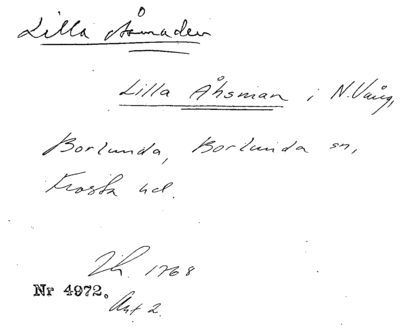 Lilla Åsmaden
Lilla Åhsman i N. Vång,
Borlunda, Borlunda sn,
Frosta hd.
Jh. 1768
Nr 4972.
Akt 2.